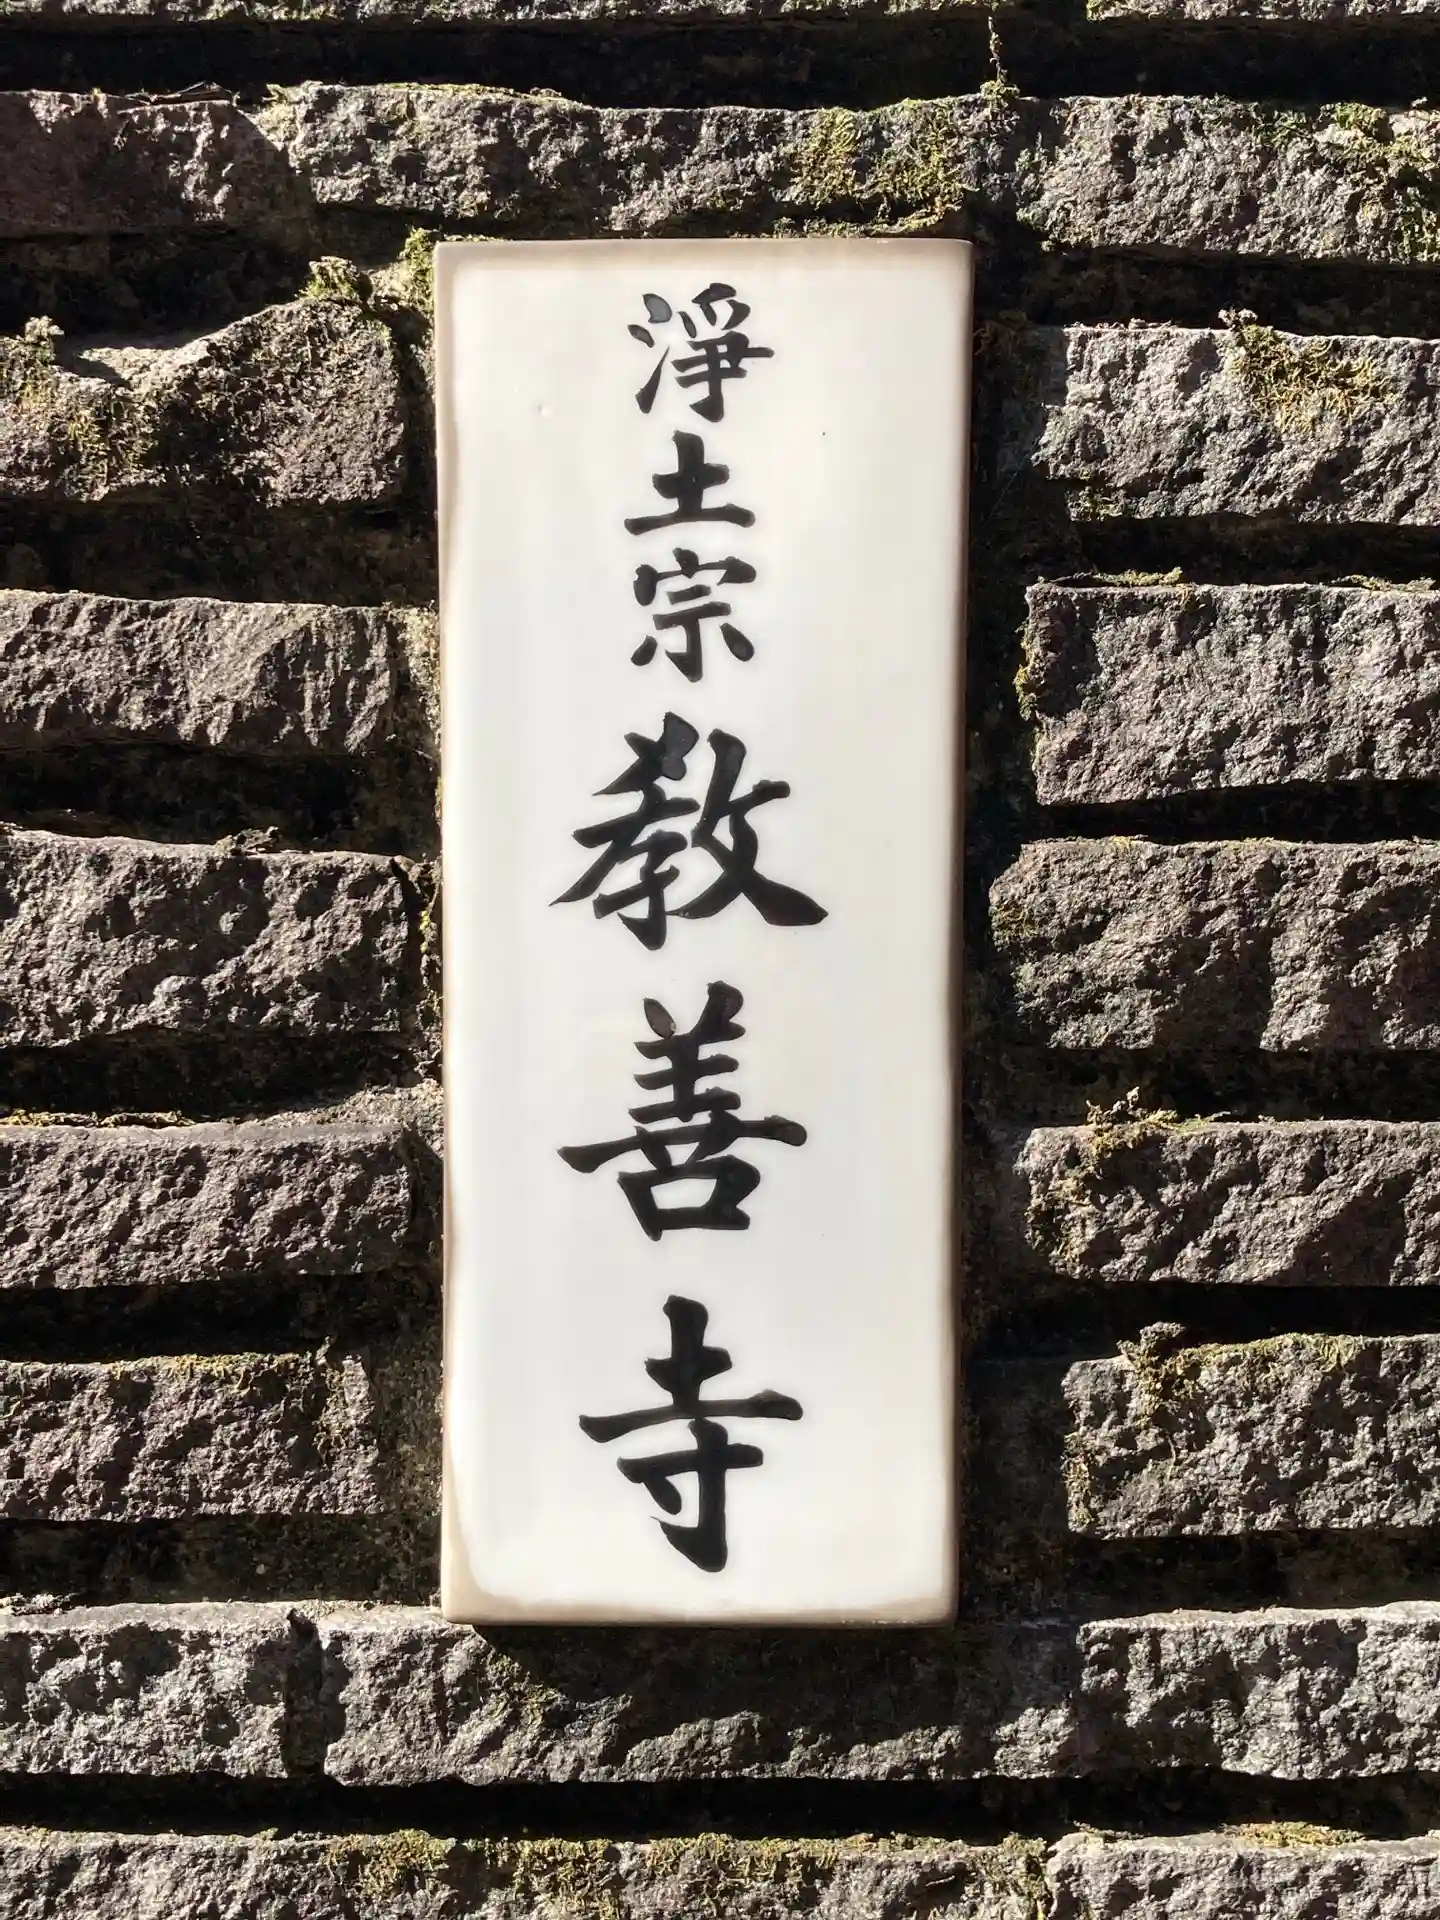 淨土宗教善寺